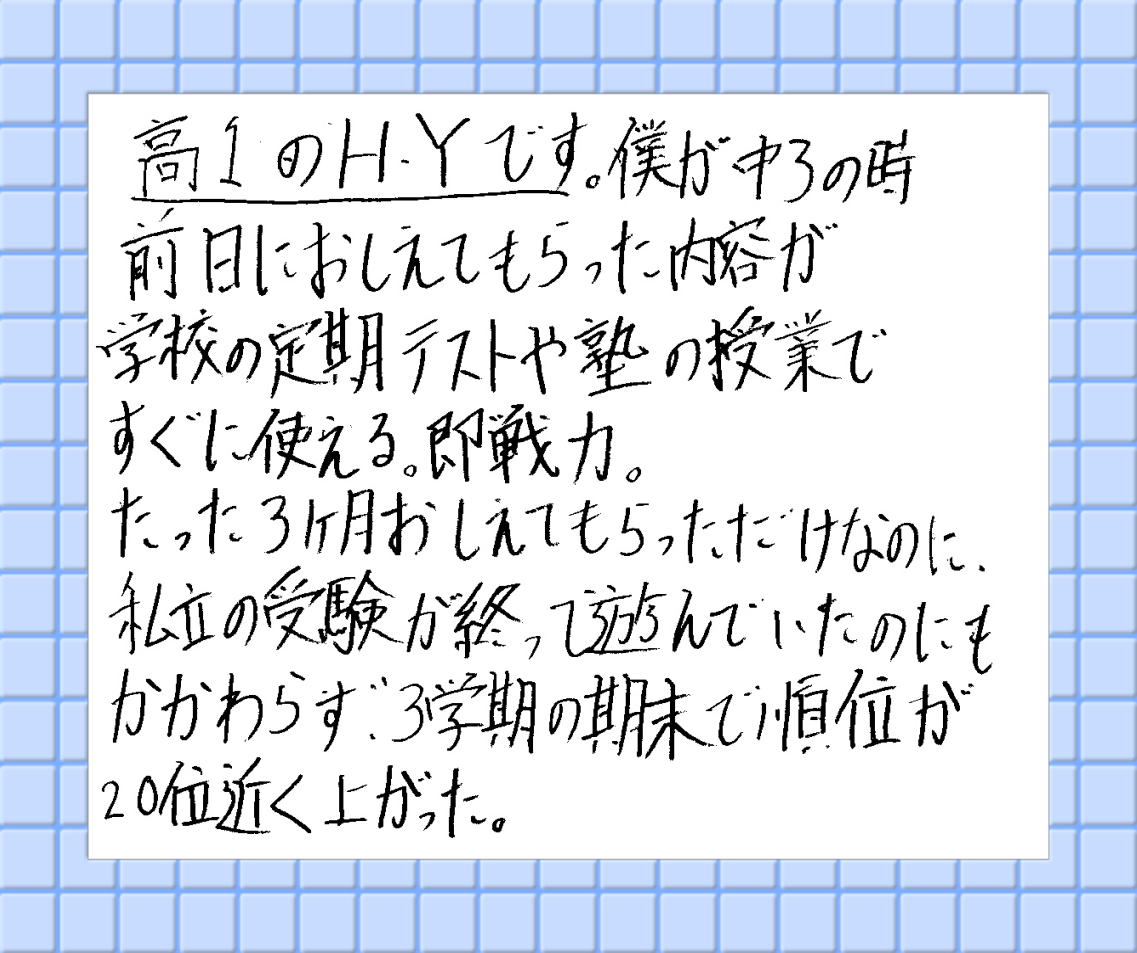 高1のH.Yです。僕が中3の時
前日におしえてもらった内容が
学校の定期テストや塾の授業で
すぐに使える。即戦力。
たった3ヶ月おしえてもらっただけなのに、
私立の受験が終って遊んでいたのにも
かかわらず、3学期の期末で順位が
20位近く上がった。